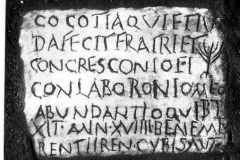 COCOTIAQVIETIV
DAFECITFRATRIETI
CONCRESCONIOEI
CONLABORONIOMEO
ABVNDANTIOQVIBI
XITANNXVIIIIBENEME
RENTIIRENCVBISAVT